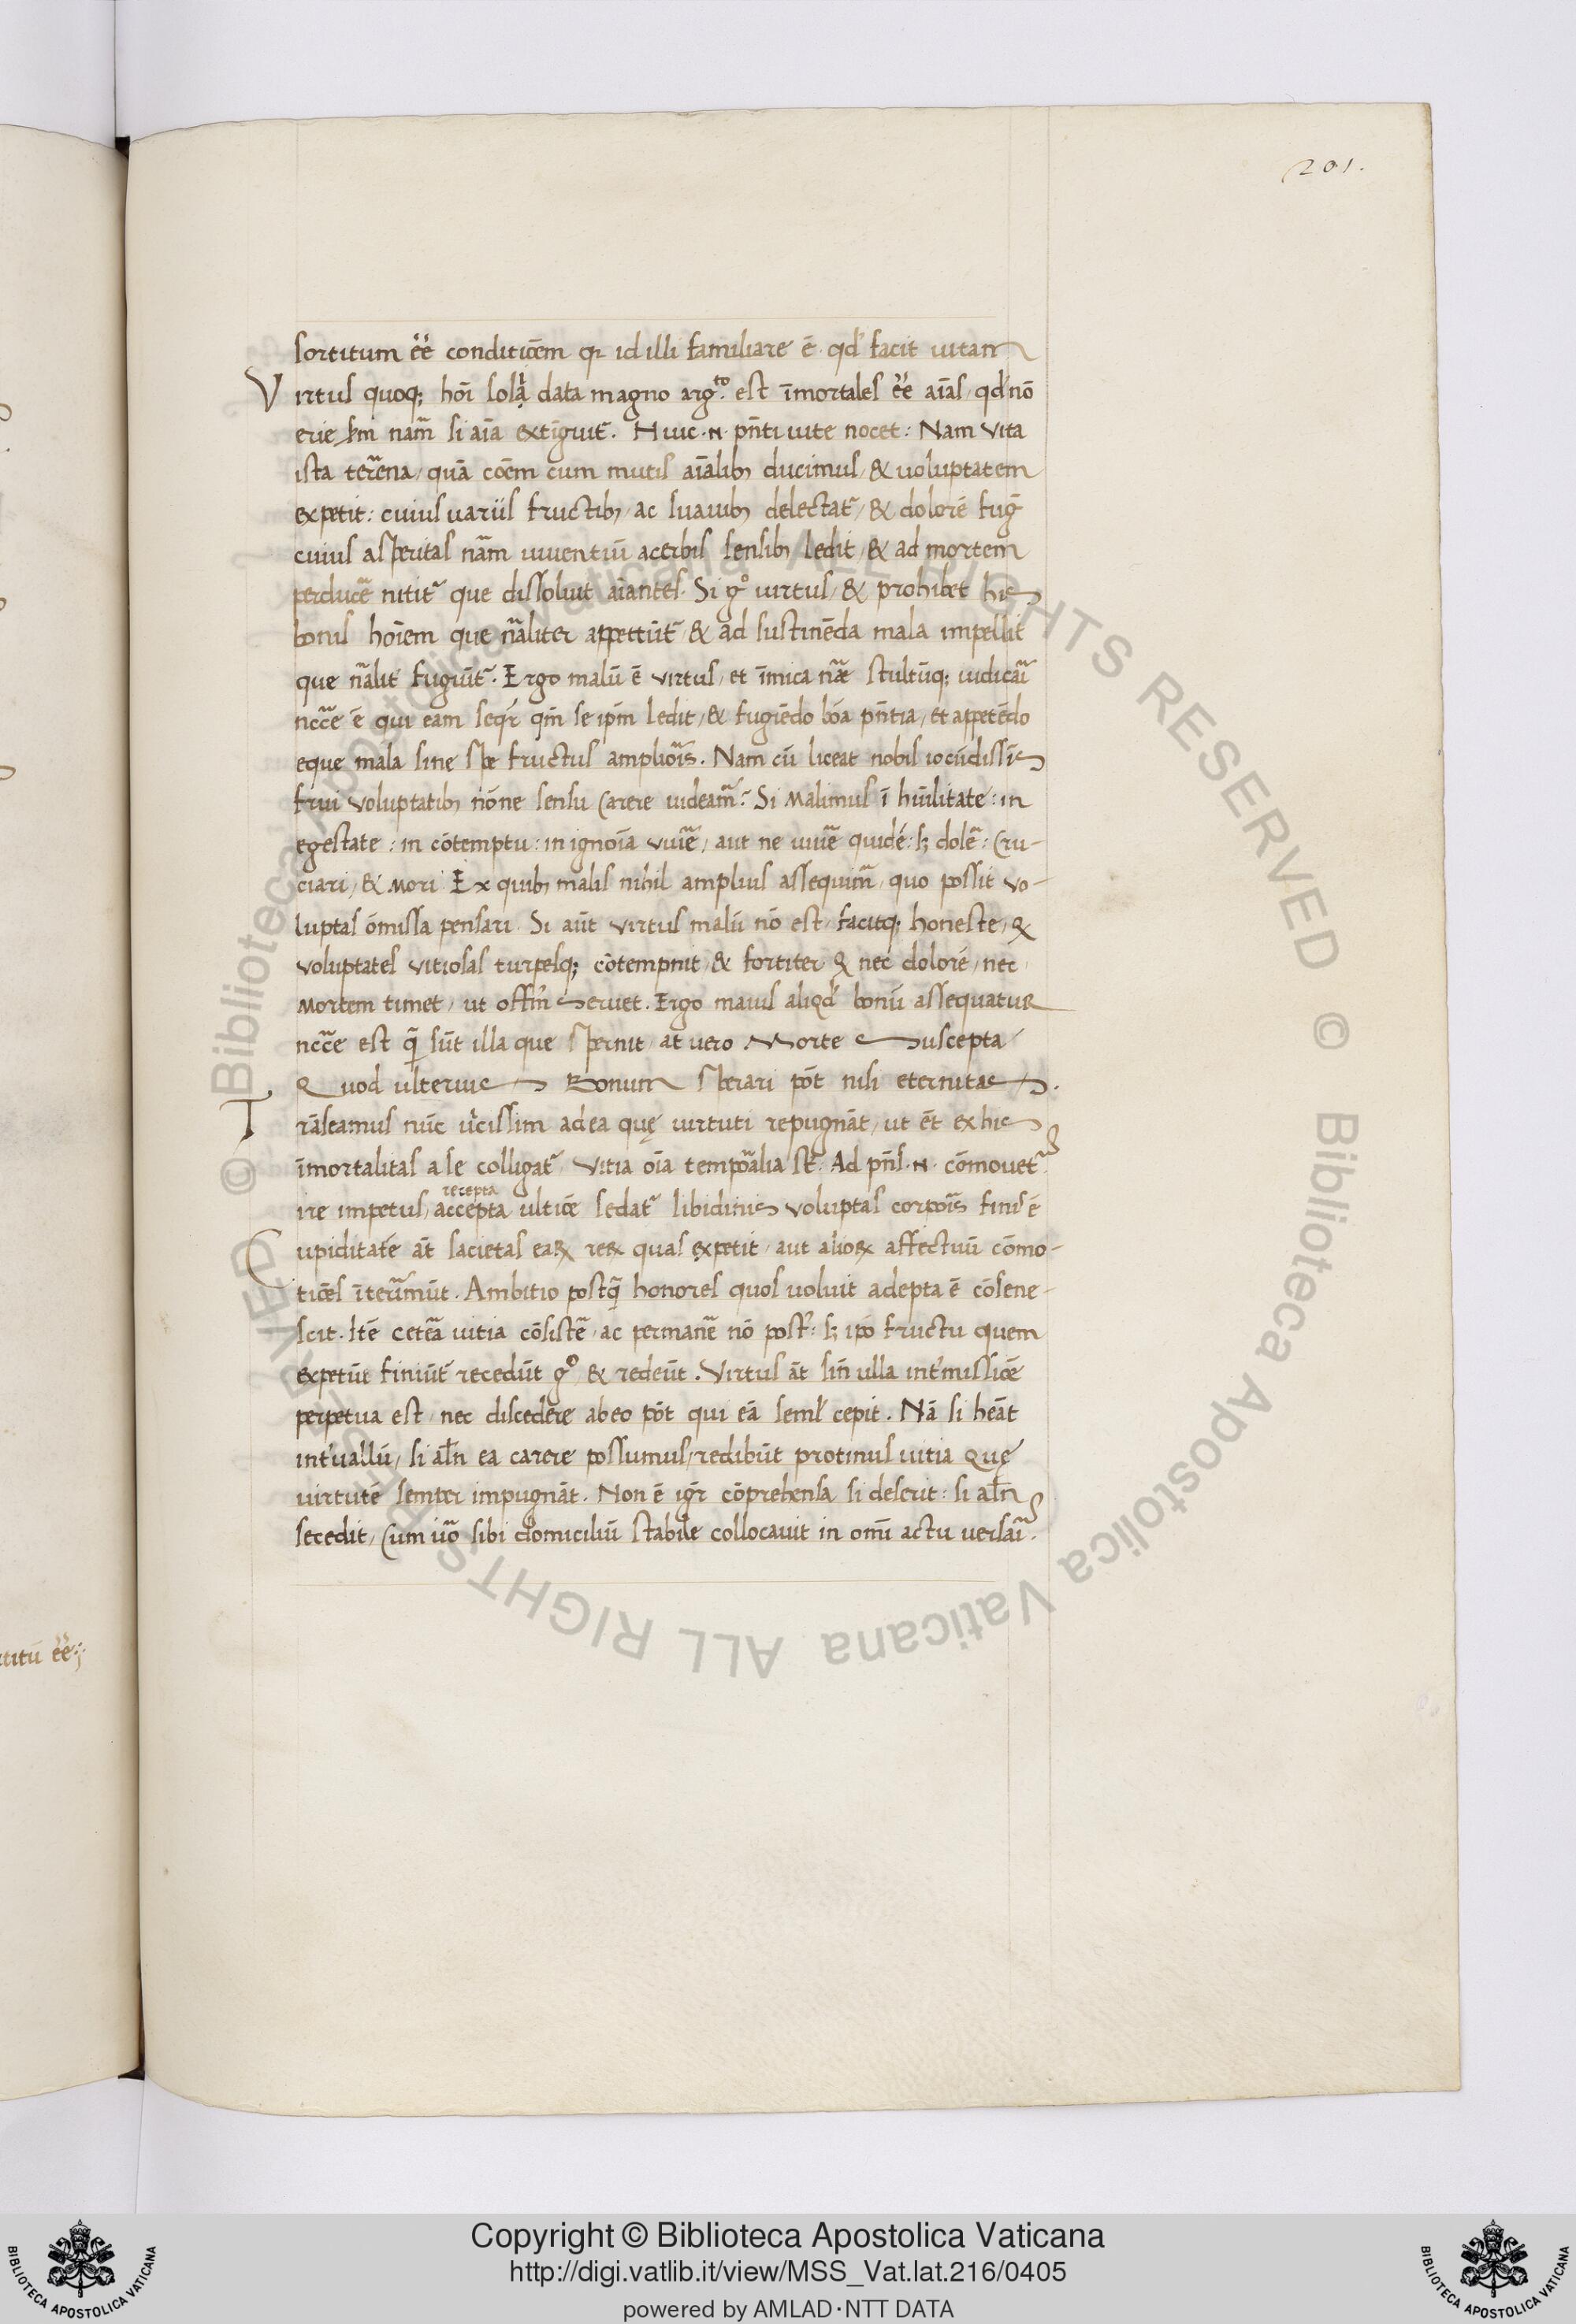 201.
sortitum eẽ conditiõem qr id illi familiare ẽ. qd' facit uitam
Virtus quoq; hoĩ solạ̃ data magno arg.to est ĩmortales eẽ aĩas, qd' nõ
erit nam̃ si aĩa extĩguit̃. Huic .N. pñti uite nocet: Nam vita
ista terẽna, quã coẽm cum mutis aĩalib; ducimus, & uoluptatem
expetit: cuius uariis fructib; ac suauib; delectat̃, & dolorẽ fug̃
cuius asperitas nãm uiuentiũ acerbis sensib; ledit, & ad mortem
perducẽ nitit̃ que dissoluit aĩantes. Si gº uirtus, & prohibet his
bonis hoĩem que nãliter appetũt̃, & ad sustinẽda mala impellit
que nãlit' fugiũt̃. Ergo malũ ẽ virtus, et ĩmica nãe stultũq; iudicãi
nccẽ ẽ qui eam seqr̃ qm̃ se ipm̃ ledit, & fugiẽdo bõa pñtia, et appetẽdo
eque mala sine spe fructus amplioĩs. Nam cũ liceat nobis iocũdissĩs
frui voluptatib; nõne sensu carere uideam̃? Si Malimus ĩ hũilitate: in
egestate: in cõtemptu: in ignoĩa viuẽ, aut ne uiuẽ quidẽ: s; dolẽ: Cru-
ciari, & Mori Ex quib; malis nihil amplius assequim̃, quo possit vo-
luptas õmissa pensari. Si aũt virtus malũ nõ est, facitq; honeste, Q
voluptates vitiosas turpesq; cõtempnit, & fortiter Q nec dolorẽ, nec
Mortem timet, ut offm̃ Seruet. Ergo maius aliqd' bonũ assequatur
nccẽ est q̃ sũt illa que spernit, at uero Morte Suscepta
Quod ulterius Bonum sperari põt nisi eternitas.
Trãseamus nũc uĩcissim ad ea quę uirtuti repugnãt, ut ẽt ex his
ĩmortalitas a se colligat̃, Vitia oĩa tempoãlia st̃. Ad pñs .N. cõmouet̃
recepta
ire impetus, accepta ultiõe sedat̃ libidinis voluptas corpoĩs finis ẽ
Cupiditatẽ ãt sacietas eaꝝ reꝝ quas expetit, aut alioꝝ affectuũ cõmo-
tiões ĩterĩmũt. Ambitio postq̃ honores quos uoluit adepta ẽ cõsene-
scit. Itẽ ceteã uitia cõsistẽ, ac permanẽ nõ post̃: s; ipo fructu quem
expetũt finiũt̃ recedũt gº, & redeũt. Virtus ãt siñ ulla int'missiõe
perpetua est, nec discedere ab eo põt qui eã seml' cepit. Nã si heãt
int'uallũ, si alñ ea carere possumus, redibũt protinus uitia Quę
uirtutẽ semper impugnãt. Non ẽ igr̃ cõprehensa si deserit: si alñ
secedit, Cum ũo sibi domiciliũ stabile collocauit in omũ actu uersaĩ.
titũ eẽ;
© Biblioteca Apostolica Vaticana ALL RIGHTS RESERVED © Biblioteca Apostolica Vaticana ALL RIGHTS RESERVED
Copyright © Biblioteca Apostolica Vaticana
http://digi.vatlib.it/view/MSS_Vat.lat.216/0405
powered by AMLAD·NTT DATA
BIBLIOTECA APOSTOLICA VATICANA
BIBLIOTECA APOSTOLICA VATICANA